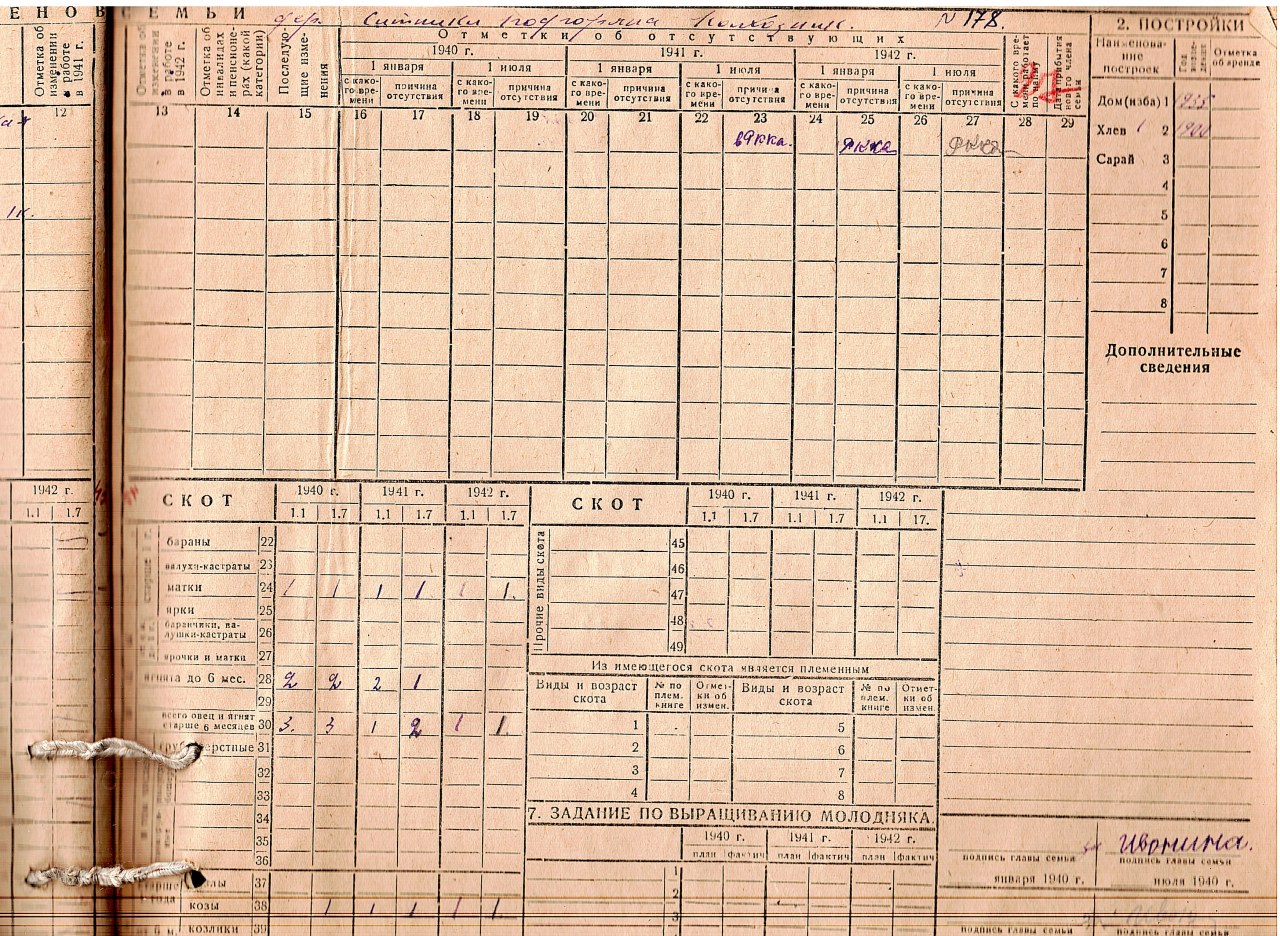 ЕНОВ ЕМЬИ
дер. колхозник. N 178.
Отметка об изменении в работе в 1941 г.
в работе в 1942 г.
Отметка об инвалидах и пенсионерах (какой категории)
Последующие изменения
Отметки об отсутствующих
1940 г. 1941 г. 1942 г.
1 января 1 июля 1 января 1 июля 1 января 1 июля
с какого времени причина отсутствия с какого времени причина отсутствия с какого времени причина отсутствия с какого времени причина отсутствия с какого времени причина отсутствия с какого времени причина отсутствия
Дата прибытия нового члена семьи
12 13 14 15 16 17 18 19 20 21 22 23 24 25 26 27 28 29
в РККА. РККА РККА
2. ПОСТРОЙКИ
Наименование построек Год Отметка об аренде
Дом (изба) 1
Хлев 2
Сарай 3
4
5
6
7
8
Дополнительные сведения
1942 г.
1.1 1.7
СКОТ 1940 г. 1941 г. 1942 г.
1.1 1.7 1.1 1.7 1.1 1.7
бараны 22
валухи-кастраты 23
матки 24 1 1 1 1 1 1.
ярки 25
баранчики, валушки-кастраты 26
ярочки и матки 27
ягнята до 6 мес. 28 2 2 2 1
29
всего овец и ягнят старше 6 месяцев 30 3. 3 1 2 1 1.
31
32
33
34
35
36
37
козы 38 1 1 1 1 1.
козлики 39
СКОТ 1940 г. 1941 г. 1942 г.
1.1 1.7 1.1 1.7 1.1 17.
Прочие виды скота
45
46
47
48
49
Из имеющегося скота является племенным
Виды и возраст скота № по плем. книге Отметки об измен. Виды и возраст скота № по плем. книге Отметки об измен.
1 5
2 6
3 7
4 8
7. ЗАДАНИЕ ПО ВЫРАЩИВАНИЮ МОЛОДНЯКА.
1940 г. 1941 г. 1942 г.
план фактич план фактич план фактич
1
2
3
Ивонина.
подпись главы семьи подпись главы семьи
января 1940 г. июля 1940 г.
подпись главы семьи подпись главы семьи